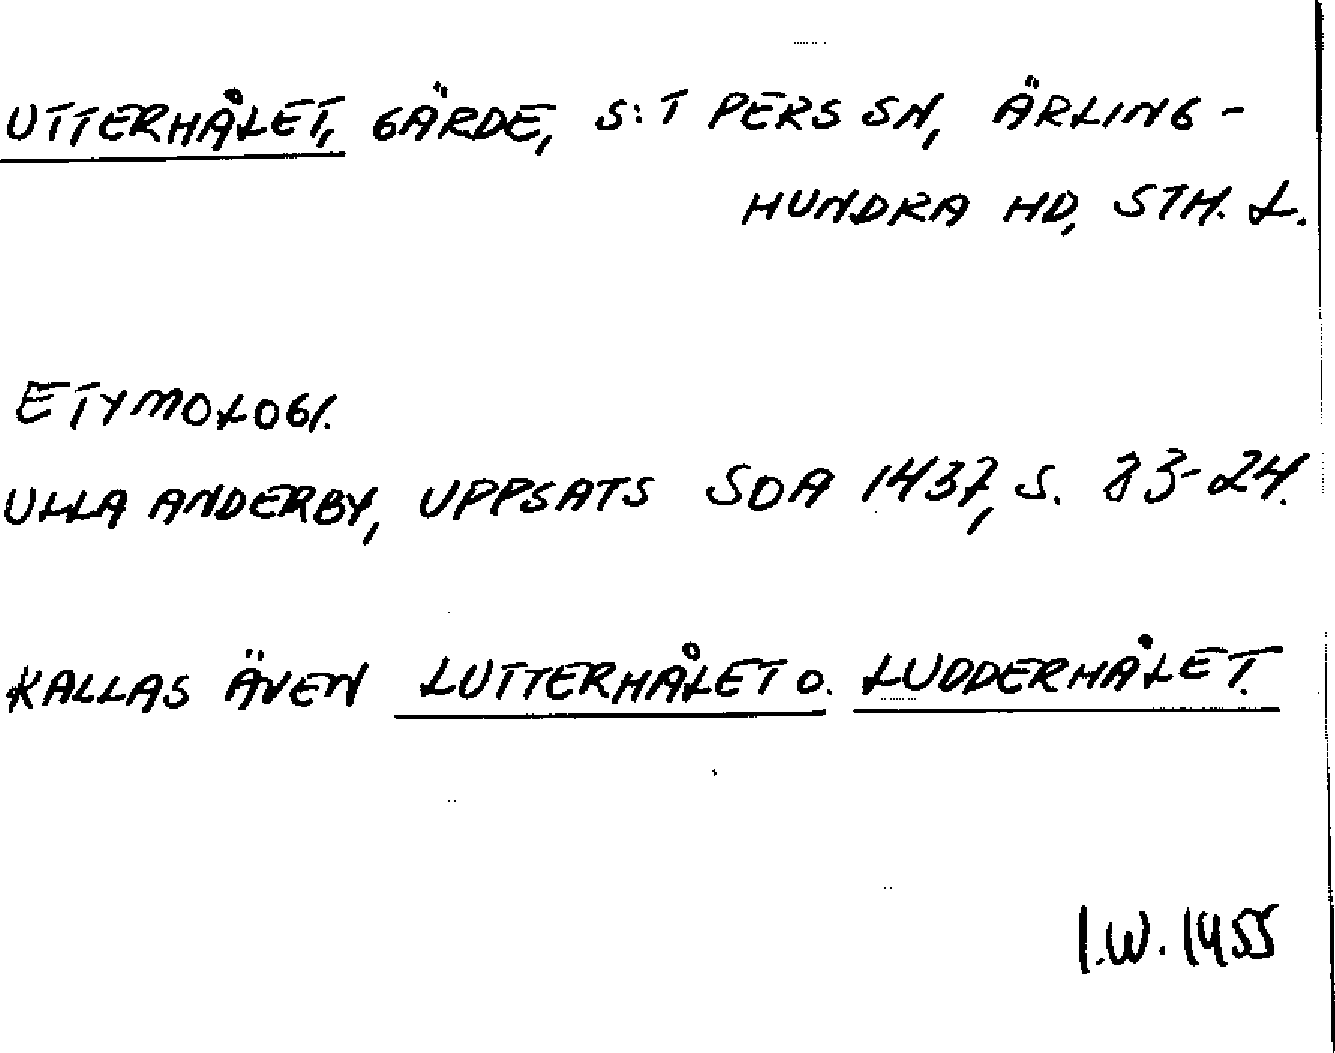 UTTERHÅLET, GÄRDE, S:T PERS SN, ÄRLING-
HUNDRA HD, STH. L.
ETYMOLOGI.
ULLA ANDERBY, UPPSATS SOA 1437, S. 23-24.
KALLAS ÄVEN LUTTERHÅLET O. LUDDERHÅLET.
I.W. 1455